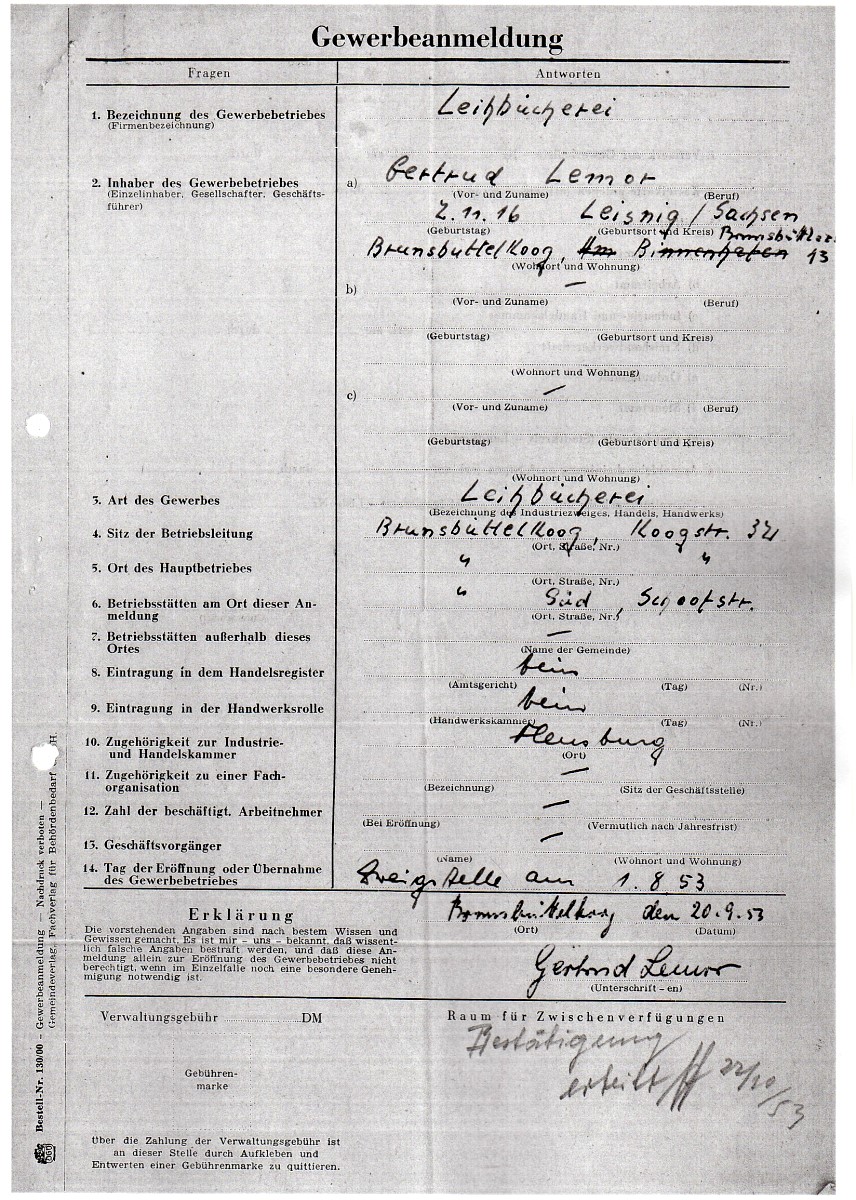 Gewerbeanmeldung
Fragen Antworten
1. Bezeichnung des Gewerbebetriebes Leihbücherei
(Firmenbezeichnung)
2. Inhaber des Gewerbebetriebes a) Gertrud Lemor
(Einzelinhaber, Gesellschafter, Geschäfts- (Vor- und Zuname) (Beruf)
führer) 2.11.16 Leisnig / Sachsen
(Geburtstag) (Geburtsort und Kreis)
Brunsbüttelkoog, Am Binnenhafen 13
(Wohnort und Wohnung)
b) —
(Vor- und Zuname) (Beruf)
(Geburtstag) (Geburtsort und Kreis)
(Wohnort und Wohnung)
c) —
(Vor- und Zuname) (Beruf)
(Geburtstag) (Geburtsort und Kreis)
(Wohnort und Wohnung)
3. Art des Gewerbes Leihbücherei
(Bezeichnung des Industriezweiges, Handels, Handwerks)
4. Sitz der Betriebsleitung Brunsbüttelkoog, Koogstr.
(Ort, Straße, Nr.)
5. Ort des Hauptbetriebes " "
(Ort, Straße, Nr.)
6. Betriebsstätten am Ort dieser An- " Süd, Schoofstr.
meldung (Ort, Straße, Nr.)
7. Betriebsstätten außerhalb dieses —
Ortes (Name der Gemeinde)
8. Eintragung in dem Handelsregister
(Amtsgericht) (Tag) (Nr.)
9. Eintragung in der Handwerksrolle
(Handwerkskammer) (Tag) (Nr.)
10. Zugehörigkeit zur Industrie- Flensburg
und Handelskammer (Ort)
11. Zugehörigkeit zu einer Fach- —
organisation (Bezeichnung) (Sitz der Geschäftsstelle)
12. Zahl der beschäftigt. Arbeitnehmer —
(Bei Eröffnung) (Vermutlich nach Jahresfrist)
13. Geschäftsvorgänger —
(Name) (Wohnort und Wohnung)
14. Tag der Eröffnung oder Übernahme Zweigstelle am 1.8.53
des Gewerbebetriebes
Erklärung Brunsbüttelkoog den 20.9.53
Die vorstehenden Angaben sind nach bestem Wissen und (Ort) (Datum)
Gewissen gemacht. Es ist mir – uns – bekannt, daß wissent-
lich falsche Angaben bestraft werden, und daß diese An-
meldung allein zur Eröffnung des Gewerbebetriebes nicht
berechtigt, wenn im Einzelfalle noch eine besondere Geneh-
migung notwendig ist.
Gertrud Lemor
(Unterschrift – en)
Verwaltungsgebühr DM Raum für Zwischenverfügungen
Bestätigung
erteilt 22/10/53
Gebühren-
marke
Über die Zahlung der Verwaltungsgebühr ist
an dieser Stelle durch Aufkleben und
Entwerten einer Gebührenmarke zu quittieren.
Bestell-Nr. 130/00 — Gewerbeanmeldung — Nachdruck verboten —
Gemeindeverlag, Fachverlag für Behördenbedarf